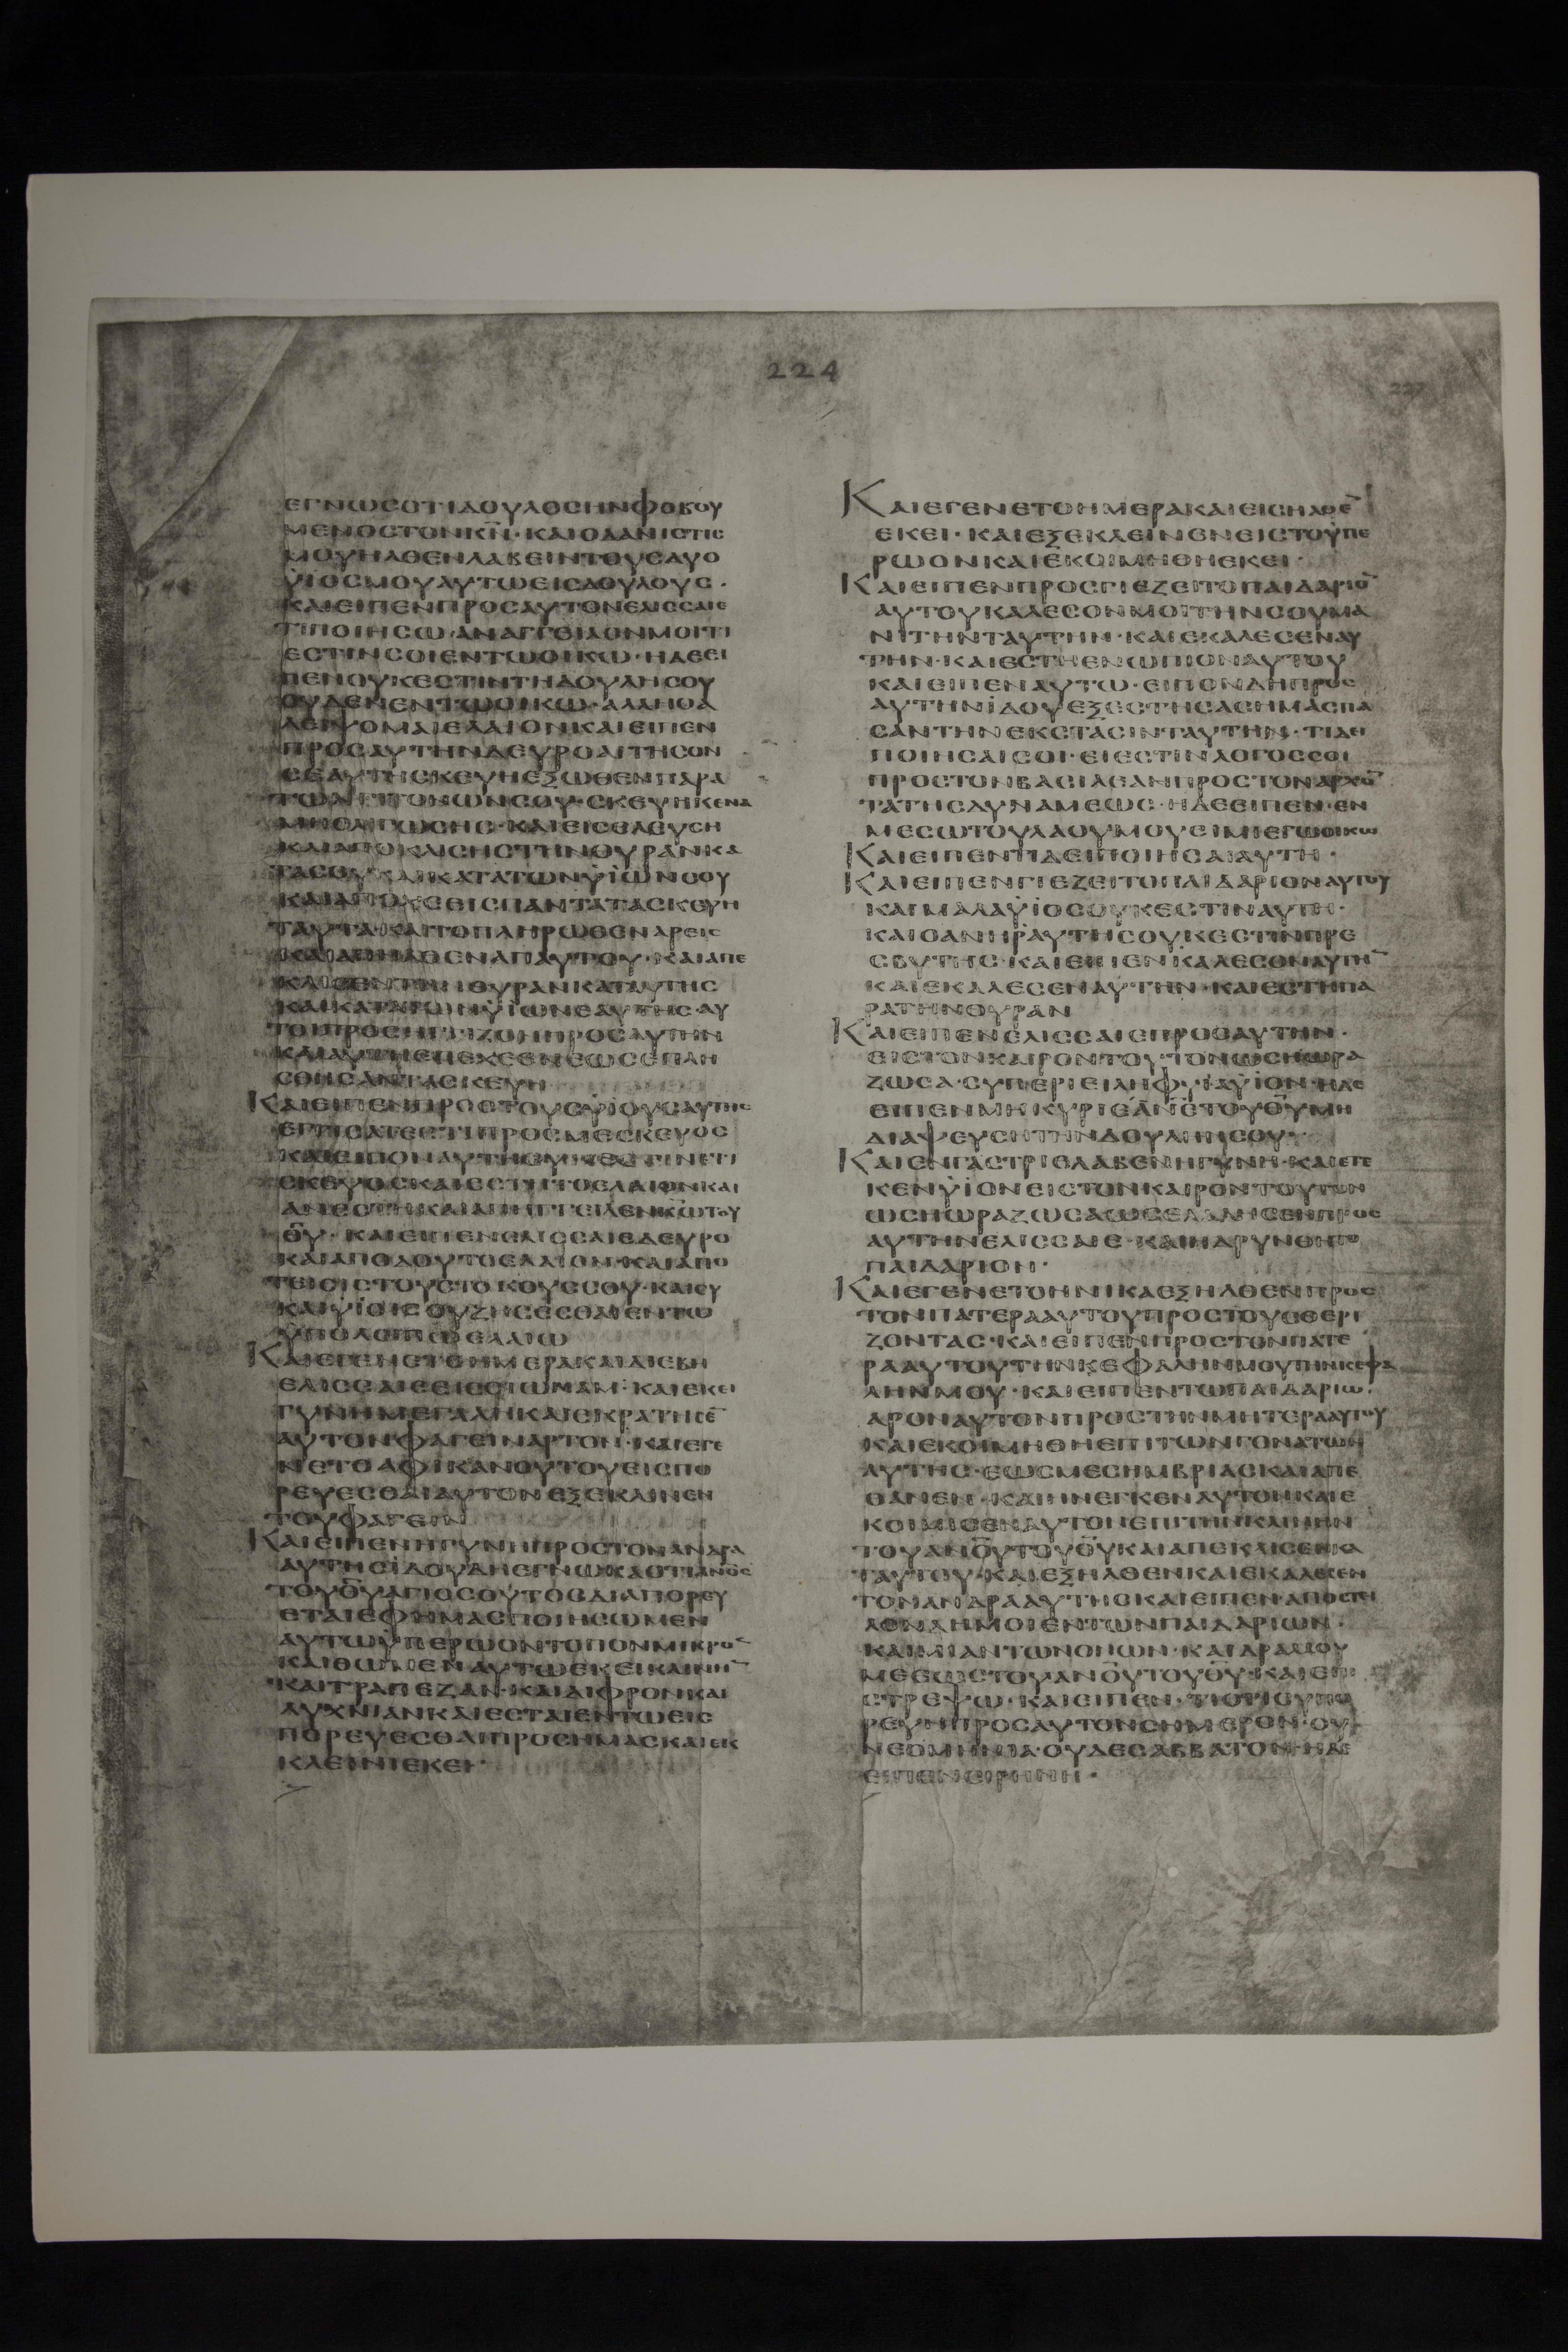 224
ΕΓΝΩСΟΤΙΔΟΥΛΟСΗΝΦΟΒΟΥ
ΜΕΝΟСΤΟΝΚΝ̅·ΚΑΙΟΔΑΝΙСΤΗС
ΜΟΥΗΛΘΕΝΛΑΒΕΙΝΤΟΥСΔΥΟ
ΫΙΟСΜΟΥΑΥΤΩΕΙСΔΟΥΛΟΥС·
ΚΑΙΕΙΠΕΝΠΡΟСΑΥΤΟΝΕΛΙССΑΙΕ
ΤΙΠΟΙΗСΩ·ΑΝΑΓΓΕΙΛΟΝΜΟΙΤΙ
ΕСΤΙΝСΟΙΕΝΤΩΟΙΚΩ·ΗΔΕΕΙ
ΠΕΝΟΥΚΕСΤΙΝΤΗΔΟΥΛΗСΟΥ
ΟΥΔΕΝΕΝΤΩΟΙΚΩ·ΑΛΛΗΟΑ
ΛΕΙΨΟΜΑΙΕΛΑΙΟΝΚΑΙΕΙΠΕΝ
ΠΡΟСΑΥΤΗΝΔΕΥΡΟΑΙΤΗСΟΝ
СΕΑΥΤΗСΚΕΥΗΕΞΩΘΕΝΠΑΡΑ
ΤΩΝΓΙΤΟΝΩΝСΟΥ·СΚΕΥΗΚΕΝΑ
ΜΗΟΛΙΓΩСΗС·ΚΑΙΕΙСΕΛΕΥСΗ
ΚΑΙΑΠΟΚΛΙСΗСΤΗΝΘΥΡΑΝΚΑ
ΤΑСΟΥΚΑΙΚΑΤΑΤΩΝΫΙΩΝСΟΥ
ΚΑΙΑΠΟΧΕΕΙСΠΑΝΤΑΤΑСΚΕΥΗ
ΤΑΥΤΑ·ΚΑΙΤΟΠΛΗΡΩΘΕΝΑΡΕΙС
ΚΑΙΑΠΗΛΘΕΝΑΠΑΥΤΟΥ·ΚΑΙΑΠΕ
ΚΛΙСΕΝΤΗΝΘΥΡΑΝΚΑΤΑΥΤΗС
ΚΑΙΚΑΤΑΤΩΝΫΙΩΝΕΑΥΤΗС·ΑΥ
ΤΟΙΠΡΟСΗΓΓΙΖΟΝΠΡΟСΑΥΤΗΝ
ΚΑΙΑΥΤΗΕΠΕΧΕΕΝΕΩСΕΠΛΗ
СΘΗСΑΝΤΑСΚΕΥΗ
ΚΑΙΕΙΠΕΝΠΡΟСΤΟΥСΫΙΟΥСΑΥΤΗС
ΕΓΓΙСΑΤΕΕΤΙΠΡΟСΜΕСΚΕΥΟС
ΚΑΙΕΙΠΟΝΑΥΤΗΟΥΚΕСΤΙΝΕΤΙ
СΚΕΥΟСΚΑΙΕСΤΗΤΟΕΛΑΙΟΝΚΑΙ
ΑΝΕСΤΗΚΑΙΑΠΗΓΓΕΙΛΕΝ
Θ̅Υ̅·ΚΑΙΕΙΠΕΝΕΛΙССΑΙΕΔΕΥΡΟ
ΚΑΙΑΠΟΔΟΥΤΟΕΛΑΙΟΝ·ΚΑΙΑΠΟ
ΤΕΙСΙСΤΟΥСΤΟΚΟΥССΟΥ·ΚΑΙСΥ
ΚΑΙΫΙΟΙСΟΥΖΗСΕСΘΑΙΕΝΤΩ
ΫΠΟΛΟΙΠΩΕΛΑΙΩ
ΚΑΙΕΓΕΝΕΤΟΗΜΕΡΑΚΑΙΔΙΕΒΗ
ΕΛΙССΑΙΕΕΙССΙΩΜΑΜ·ΚΑΙΕΚΕΙ
ΓΥΝΗΜΕΓΑΛΗΚΑΙΕΚΡΑΤΗСΕ̅
ΑΥΤΟΝΦΑΓΕΙΝΑΡΤΟΝ·ΚΑΙΕΓΕ
ΝΕΤΟΑΦΙΚΑΝΟΥΤΟΥΕΙСΠΟ
ΡΕΥΕСΘΑΙΑΥΤΟΝΕΞΕΚΛΙΝΕΝ
ΤΟΥΦΑΓΕΙΝ
ΚΑΙΕΙΠΕΝΗΓΥΝΗΠΡΟСΤΟΝΑΝΔΡΑ
ΑΥΤΗСΙΔΟΥΔΗΕΓΝΩΚΑΟΤΙΑΝΟ̅С
ΤΟΥΘ̅Υ̅ΑΓΙΟСΟΥΤΟСΔΙΑΠΟΡΕΥ
ΕΤΑΙΕΦΗΜΑСΠΟΙΗСΩΜΕΝ
ΑΥΤΩΫΠΕΡΩΟΝΤΟΠΟΝΜΙΚΡΟ̅
ΚΑΙΘΩΜΕΝΑΥΤΩΕΚΕΙΚΛΙΝΗ̅
ΚΑΙΤΡΑΠΕΖΑΝ·ΚΑΙΔΙΦΡΟΝΚΑΙ
ΛΥΧΝΙΑΝΚΑΙΕСΤΑΙΕΝΤΩΕΙС
ΠΟΡΕΥΕСΘΑΙΠΡΟСΗΜΑСΚΑΙΕΚ
ΚΛΕΙΝΙΕΚΕΙ·
ΚΑΙΕΓΕΝΕΤΟΗΜΕΡΑΚΑΙΕΙСΗΛΘΕ̅
ΕΚΕΙ·ΚΑΙΕΞΕΚΛΕΙΝΕΝΕΙСΤΟΫΠΕ
ΡΩΟΝΚΑΙΕΚΟΙΜΗΘΗΕΚΕΙ·
ΚΑΙΕΙΠΕΝΠΡΟСΓΙΕΖΕΙΤΟΠΑΙΔΑΡΙΟ̅
ΑΥΤΟΥΚΑΛΕСΟΝΜΟΙΤΗΝСΟΥΜΑ
ΝΙΤΗΝΤΑΥΤΗΝ·ΚΑΙΕΚΑΛΕСΕΝΑΥ
ΤΗΝ·ΚΑΙΕСΤΗΕΝΩΠΙΟΝΑΥΤΟΥ
ΚΑΙΕΙΠΕΝΑΥΤΩ·ΕΙΠΟΝΔΗΠΡΟС
ΑΥΤΗΝΪΔΟΥΕΞΕСΤΗСΑСΗΜΑСΠΑ
СΑΝΤΗΝΕΚСΤΑСΙΝΤΑΥΤΗΝ·ΤΙΔΕΙ
ΠΟΙΗСΑΙСΟΙ·ΕΙΕСΤΙΝΛΟΓΟССΟΙ
ΠΡΟСΤΟΝΒΑСΙΛΕΑΝΠΡΟСΤΟΝΑΡΧΟ̅
ΤΑΤΗСΔΥΝΑΜΕΩС·ΗΔΕΕΙΠΕΝ·ΕΝ
ΜΕСΩΤΟΥΛΑΟΥΜΟΥΕΙΜΙΕΓΩΟΙΚΩ
ΚΑΙΕΙΠΕΝΤΙΔΕΙΠΟΙΗСΑΙΑΥΤΗ·
ΚΑΙΕΙΠΕΝΓΙΕΖΕΙΤΟΠΑΙΔΑΡΙΟΝΑΥΤΟΥ
ΚΑΙΜΑΛΑΫΙΟСΟΥΚΕСΤΙΝΑΥΤΗ·
ΚΑΙΟΑΝΗΡΑΥΤΗСΟΥΚΕСΤΙΝΠΡΕ
СΒΥΤΗС·ΚΑΙΕΙΠΕΝΚΑΛΕСΟΝΑΥΤΗ̅
ΚΑΙΕΚΑΛΕСΕΝΑΥΤΗΝ·ΚΑΙΕСΤΗΠΑ
ΡΑΤΗΝΘΥΡΑΝ
ΚΑΙΕΙΠΕΝΕΛΙССΑΙΕΠΡΟСΑΥΤΗΝ·
ΕΙСΤΟΝΚΑΙΡΟΝΤΟΥΤΟΝΩСΗΩΡΑ
ΖΩСΑ·СΥΠΕΡΙΕΙΛΗΦΥΙΑΫΙΟΝ·ΗΔΕ
ΕΙΠΕΝΜΗΚΥΡΙΕΑΝ̅Ε̅ΤΟΥΘ̅Υ̅ΜΗ
ΔΙΑΨΕΥСΗΤΗΝΔΟΥΛΗΝСΟΥ·
ΚΑΙΕΝΓΑСΤΡΙΕΛΑΒΕΝΗΓΥΝΗ·ΚΑΙΕΤΕ
ΚΕΝΫΙΟΝΕΙСΤΟΝΚΑΙΡΟΝΤΟΥΤΟΝ
ΩСΗΩΡΑΖΩСΑΩСΕΛΑΛΗСΕΝΠΡΟС
ΑΥΤΗΝΕΛΙССΑΙΕ·ΚΑΙΗΔΡΥΝΘΗΤΟ
ΠΑΙΔΑΡΙΟΝ·
ΚΑΙΕΓΕΝΕΤΟΗΝΙΚΑΕΞΗΛΘΕΝΠΡΟС
ΤΟΝΠΑΤΕΡΑΑΥΤΟΥΠΡΟСΤΟΥСΘΕΡΙ
ΖΟΝΤΑС·ΚΑΙΕΙΠΕΝΠΡΟСΤΟΝΠΑΤΕ
ΡΑΑΥΤΟΥΤΗΝΚΕΦΑΛΗΝΜΟΥΤΗΝΚΕΦΑ
ΛΗΝΜΟΥ·ΚΑΙΕΙΠΕΝΤΩΠΑΙΔΑΡΙΩ·
ΑΡΟΝΑΥΤΟΝΠΡΟСΤΗΝΜΗΤΕΡΑΑΥΤΟΥ
ΚΑΙΕΚΟΙΜΗΘΗΕΠΙΤΩΝΓΟΝΑΤΩΝ
ΑΥΤΗС·ΕΩСΜΕСΗΜΒΡΙΑСΚΑΙΑΠΕ
ΘΑΝΕΝ·ΚΑΙΗΝΕΓΚΕΝΑΥΤΟΝΚΑΙΕ
ΚΟΙΜΙСΕΝΑΥΤΟΝΕΠΙΤΗΝΚΛΙΝΗΝ
ΤΟΥΑΝΟ̅Υ̅ΤΟΥΘ̅Υ̅ΚΑΙΑΠΕΚΛΙСΕΝΚΑ
ΤΑΥΤΟΥ·ΚΑΙΕΞΗΛΘΕΝΚΑΙΕΚΑΛΕСΕΝ
ΤΟΝΑΝΔΡΑΑΥΤΗСΚΑΙΕΙΠΕΝ·ΑΠΟСΤΕΙ
ΛΟΝΔΗΜΟΙΕΝΤΩΝΠΑΙΔΑΡΙΩΝ·
ΚΑΙΜΙΑΝΤΩΝΟΝΩΝ·ΚΑΙΔΡΑΜΟΥ
ΜΕΕΩСΤΟΥΑΝΟ̅Υ̅ΤΟΥΘ̅Υ̅·ΚΑΙΕΠΙ
СΤΡΕΨΩ·ΚΑΙΕΙΠΕΝ·ΤΙΟΤΙСΥΠΟ
ΡΕΥΗΠΡΟСΑΥΤΟΝСΗΜΕΡΟΝ·ΟΥ
ΝΕΟΜΗΝΙΑ·ΟΥΔΕСΑΒΒΑΤΟΝ·ΗΔΕ
ΕΙΠΕΝΕΙΡΗΝΗ·